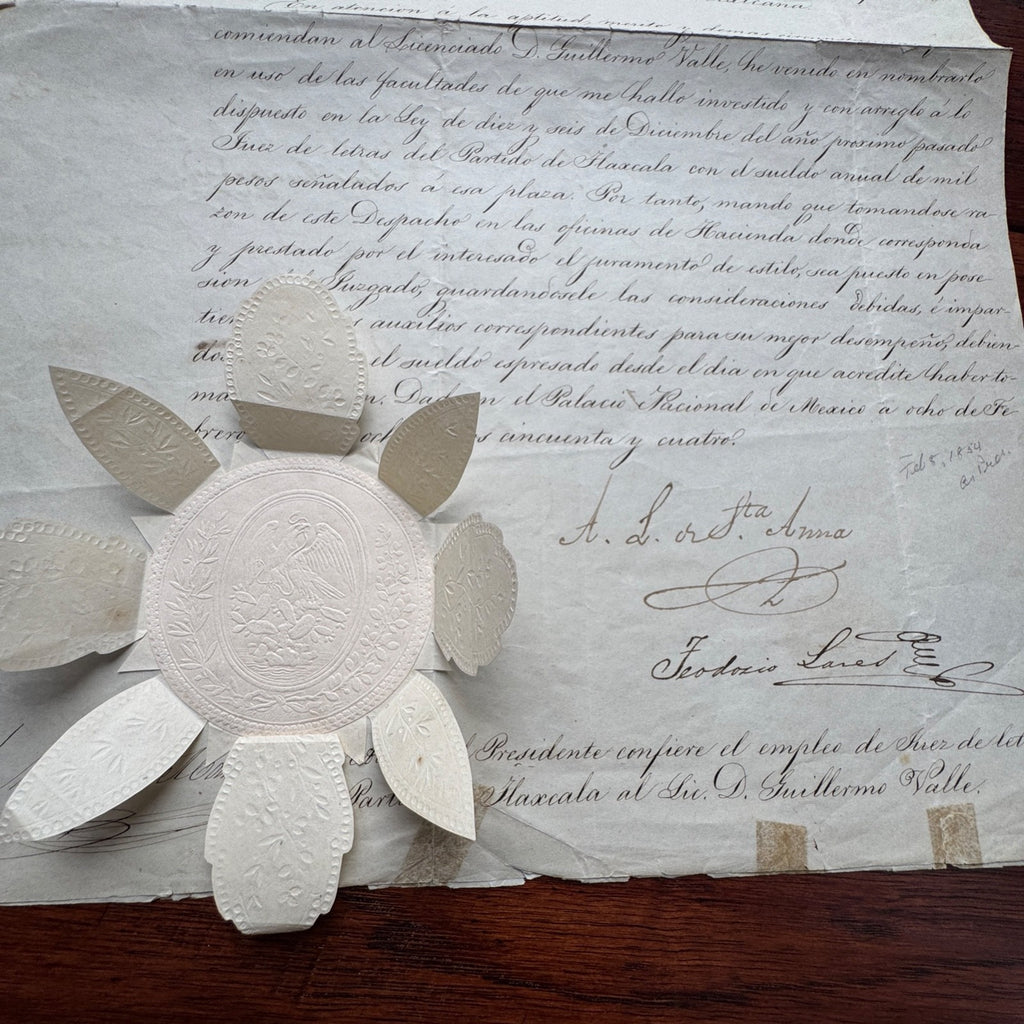 En atencion á la aptitud, merito y demas
comiendan al Licenciado D. Guillermo Valle, he venido en nombrarlo
en uso de las facultades de que me hallo investido y con arreglo á lo
dispuesto en la Ley de diez y seis de Diciembre del año proximo pasado
Juez de letras del Partido de Tlaxcala con el sueldo anual de mil
pesos señalados á esa plaza. Por tanto, mando que tomandose ra-
zon de este Despacho en las oficinas de Hacienda donde corresponda
y prestado por el interesado el juramento de estilo, sea puesto en pose
sion Juzgado, guardandosele las consideraciones debidas, é impar-
tien s auxilios correspondientes para su mejor desempeño, debien-
do el sueldo espresado desde el dia en que acredite haber to-
ma n. Dad n el Palacio Nacional de Mexico a ocho de Fe-
brero och s cincuenta y cuatro.
Feb 8, 1854
A. L. de Sta. Anna
Teodozio Lares
l Presidente confiere el empleo de Juez de let
Parti Tlaxcala al Lic. D. Guillermo Valle.